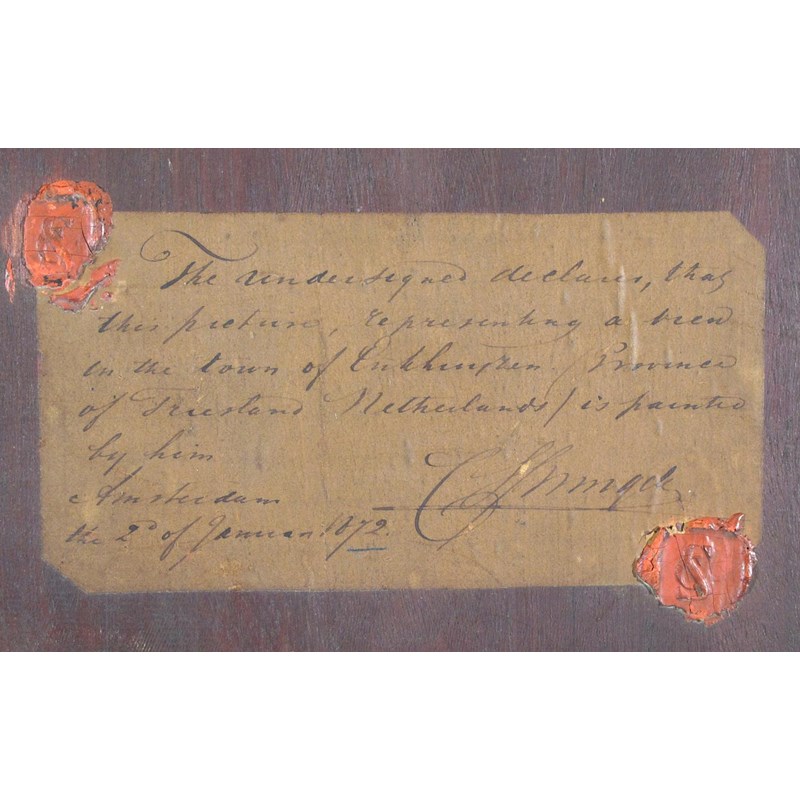 The undersigned declares, that
this picture, representing a view
in the town of Enkhuyzen (Province
of Friesland Netherlands) is painted
by him
Amsterdam C Springer
the 2d of Januar. 1872.
S
S